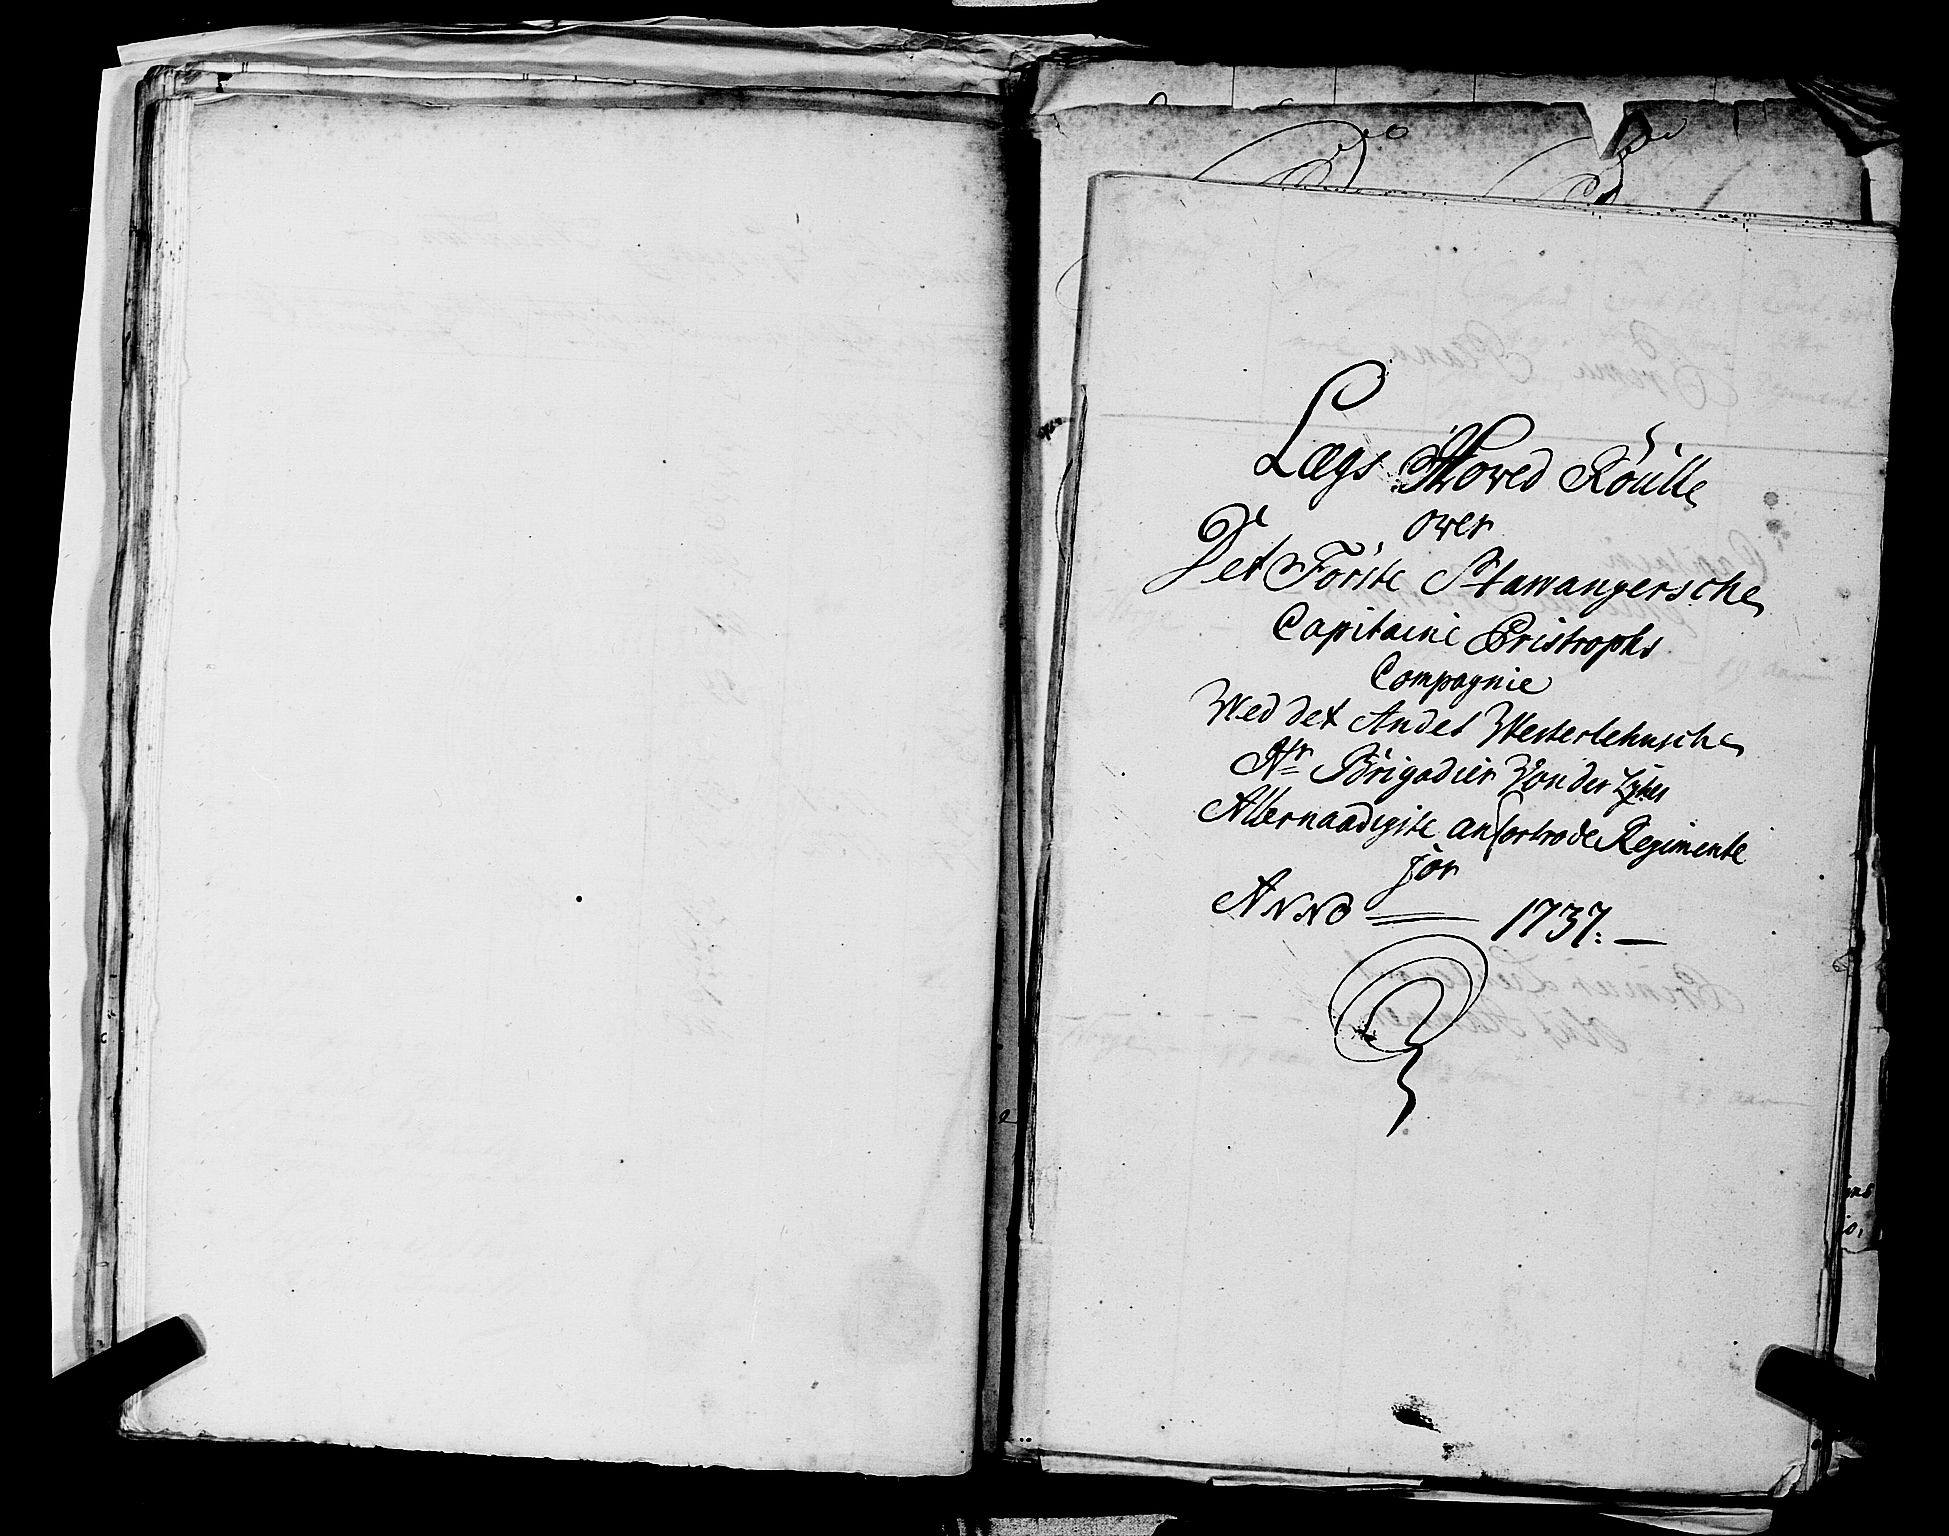 Lægs Hoved Roulle
over
Det Förste Stawangersche
Capitaine Bristrophs
Compagnie
Wed det Andet Westerlehnsche
Hr Brigadier Von der
Allernaadigste anfortrode Regimente
for
ANNO 1737.